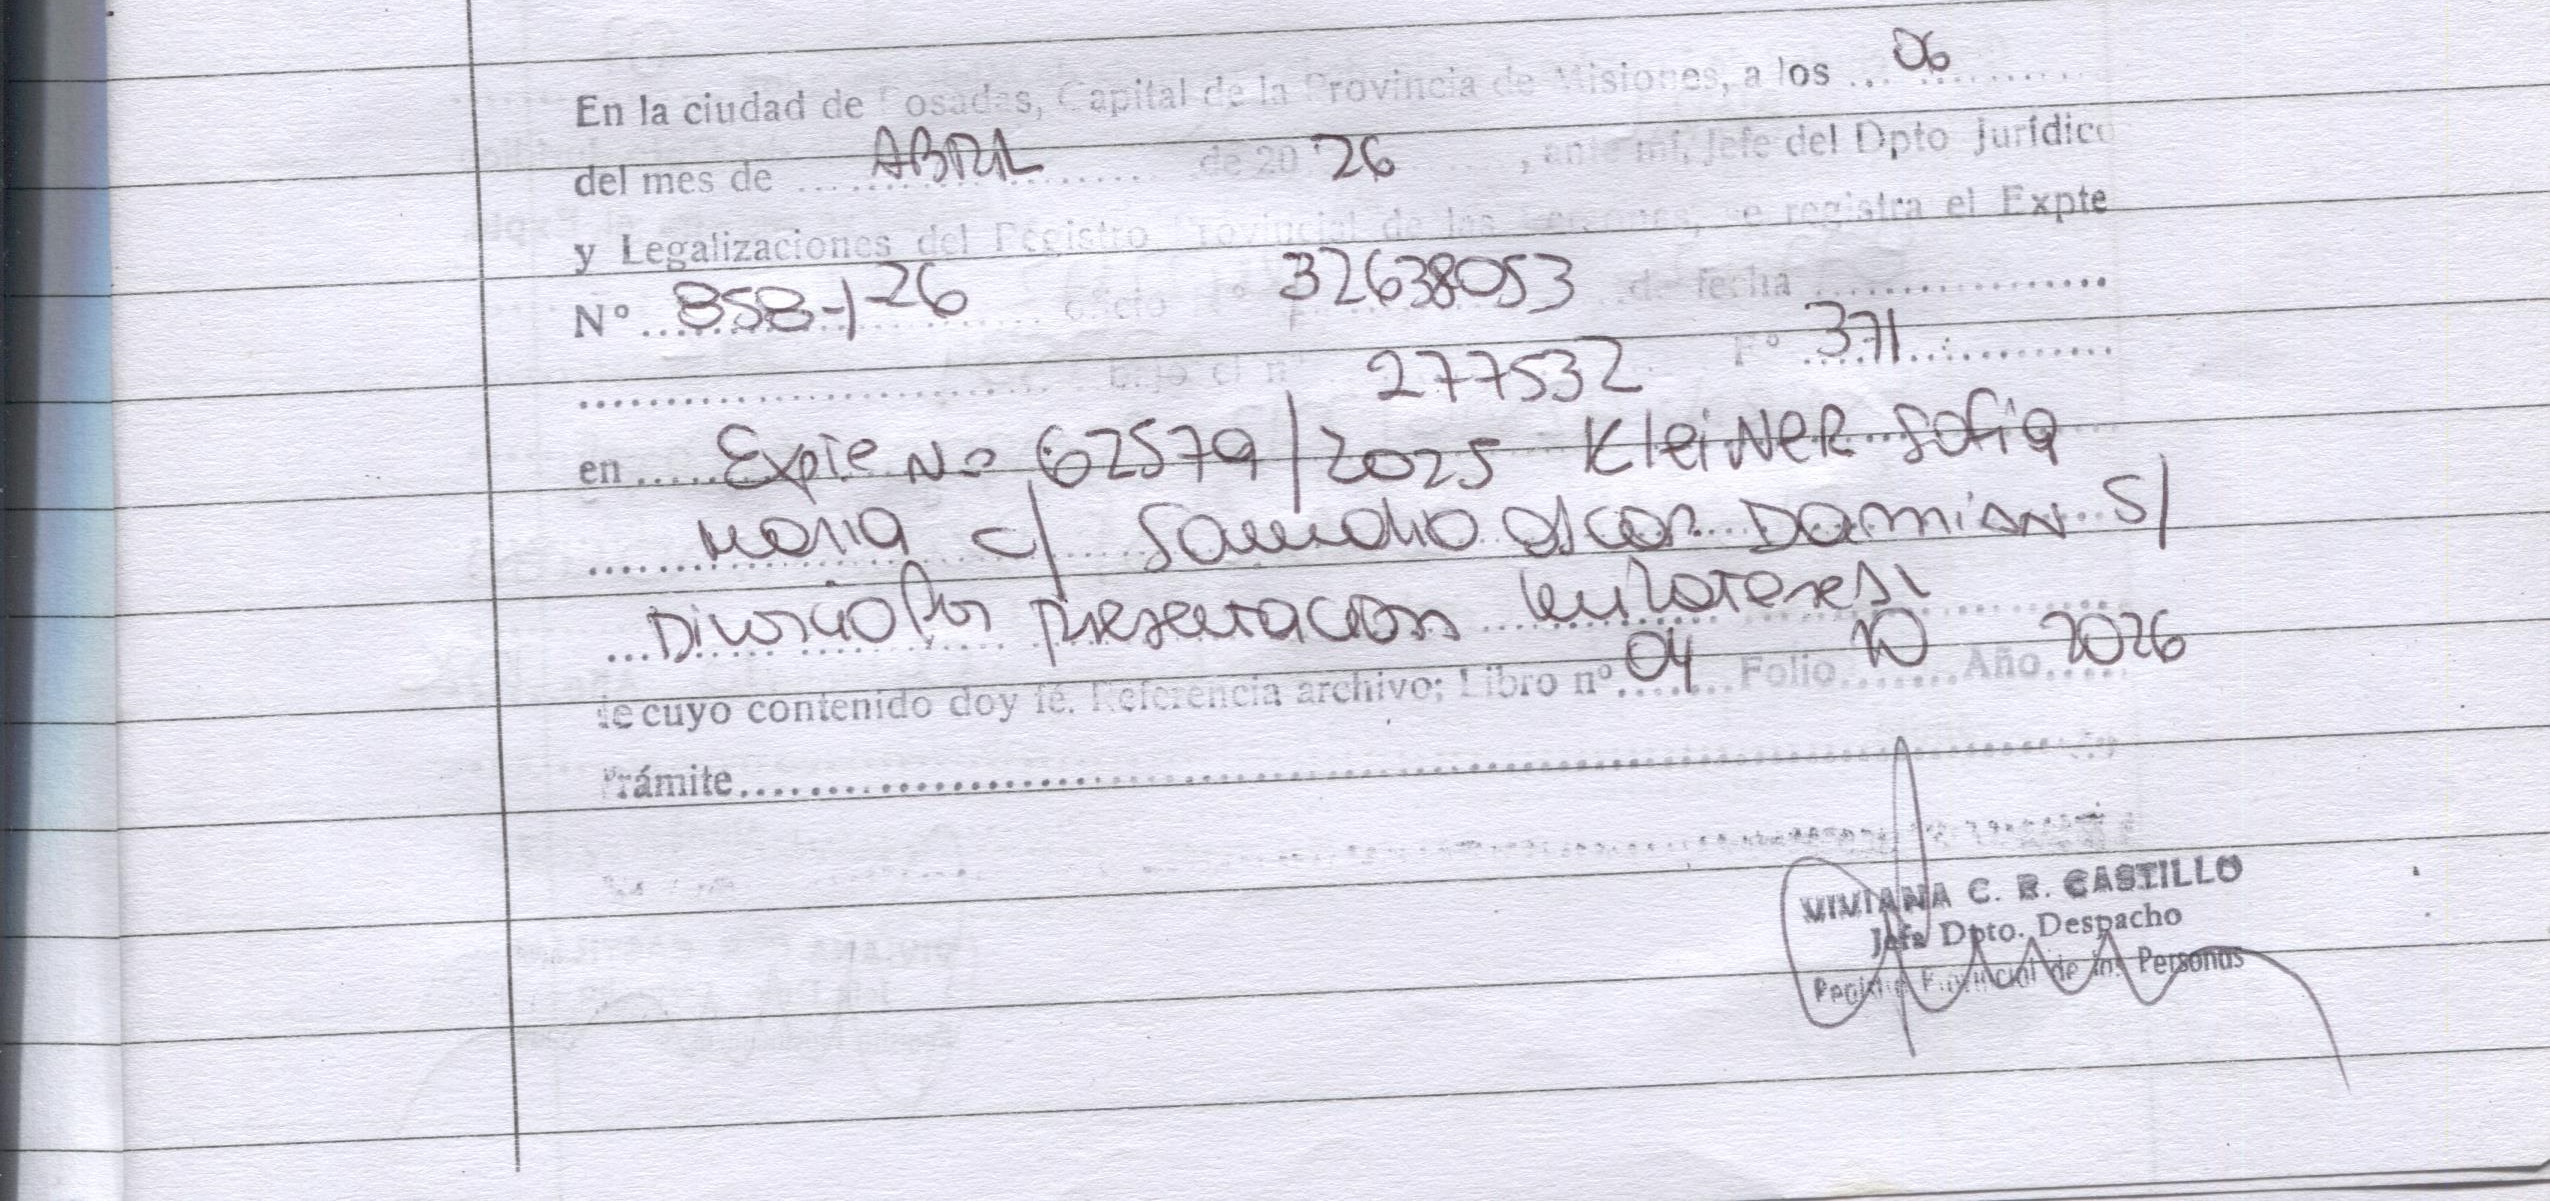 En la ciudad de Posadas, Capital de la Provincia de Misiones, a los ... 06
del mes de ... ABRIL de 20 26, ante mí, Jefe del Dpto Jurídico
y Legalizaciones del Registro Provincial de las Personas, se registra el Expte
Nº ... 858-1-26 Oficio Nº 32638053 de fecha ...
... bajo el nº 277532 Fº 371
en ... Expte Nº 62579/2025 Kleiner Sofia
Maria c/ Samudio Oscar Damian S/
Divorcio por presentacion unilateral
de cuyo contenido doy fé. Referencia archivo; Libro nº 04 Folio 10 Año 2026
Trámite...
VIVIANA C. R. CASTILLO
Jefa Dpto. Despacho
Registro Provincial de las Personas